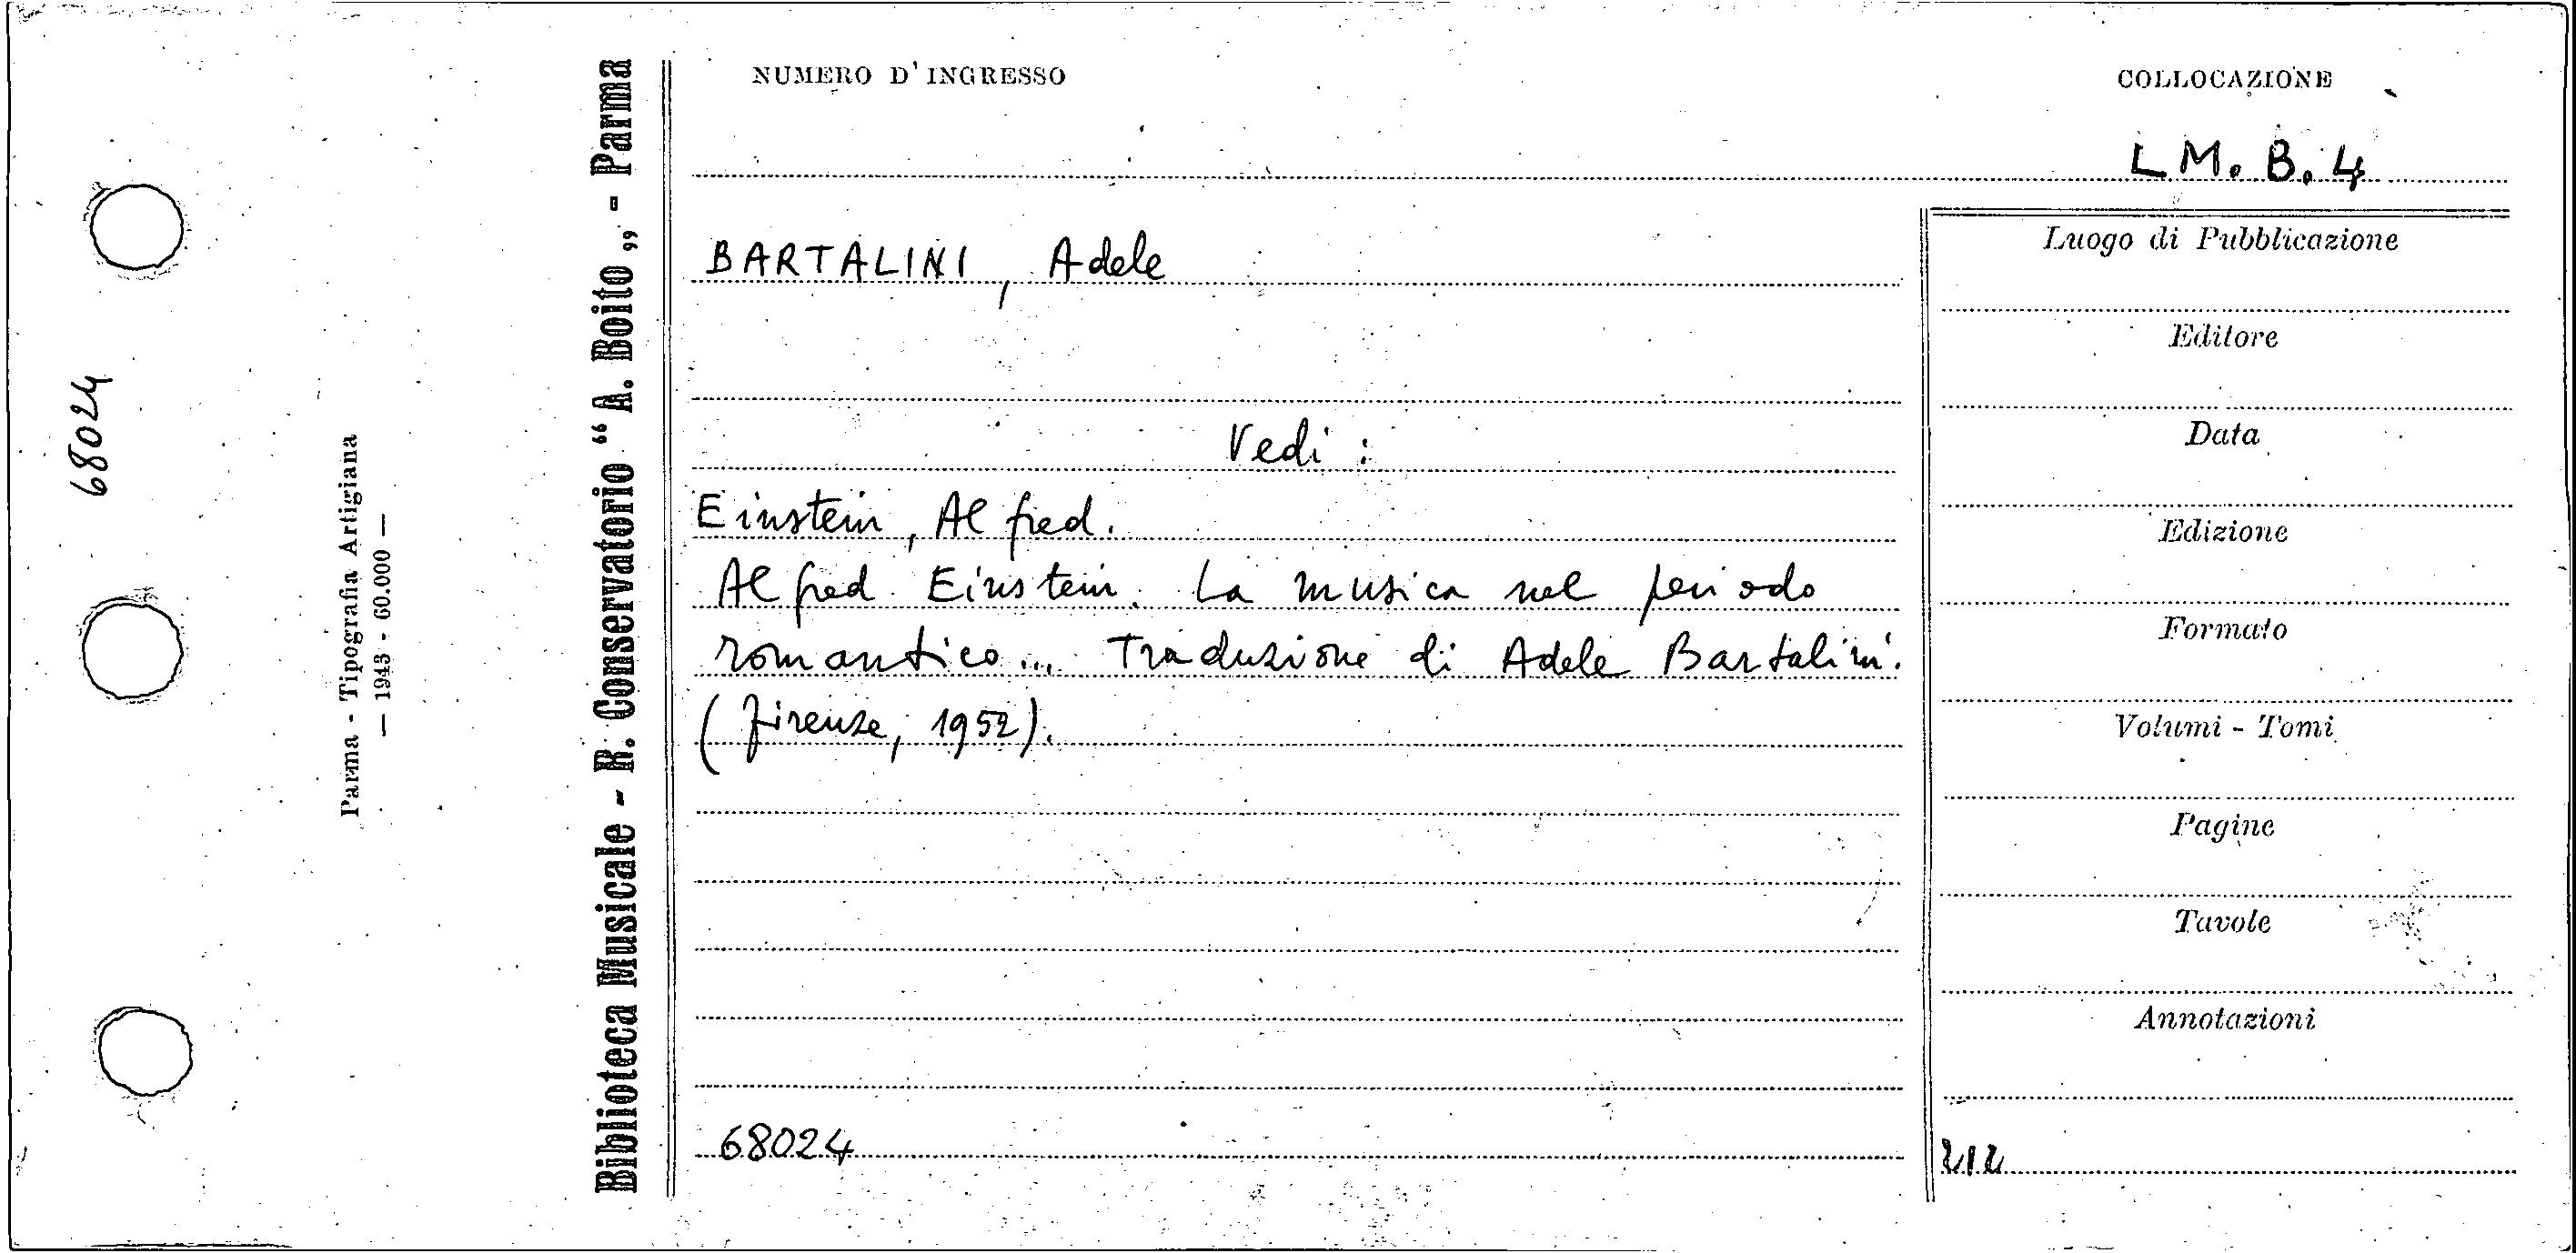 68024
Parma - Tipografia Artigiana
— 1943 - 60.000 —
Biblioteca Musicale - R. Conservatorio “ A. Boito „ - Parma
NUMERO D'INGRESSO
COLLOCAZIONE
LM. B. 4
BARTALINI, Adele
Vedi :
Einstein, Alfred.
Alfred Einstein. La musica nel periodo
romantico... Traduzione di Adele Bartalini.
(Firenze, 1952).
68024
Luogo di Pubblicazione
Editore
Data
Edizione
Formato
Volumi - Tomi
Pagine
Tavole
Annotazioni
212